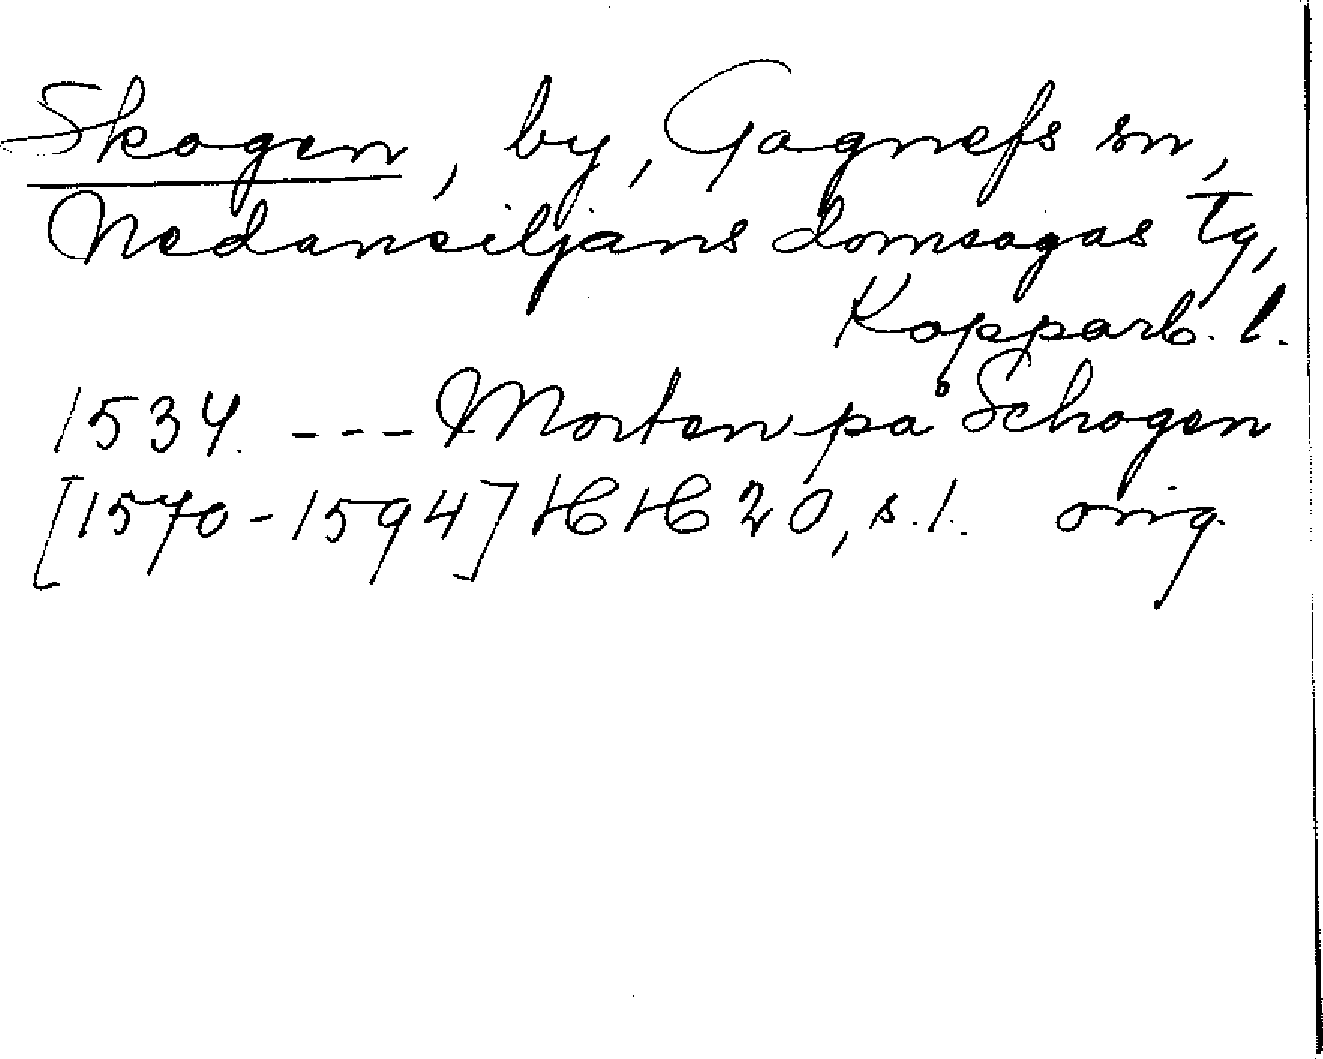 Skogen, by, Gagnefs sn,
Nedansiljans domsagas tg,
Kopparb. l.
1534. --- Morten på Schogen
[1570-1594] HH 20, s.1. orig.